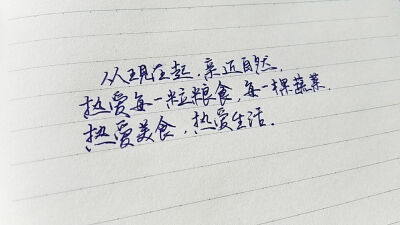 从现在起，亲近自然，
热爱每一粒粮食，每一棵蔬菜，
热爱美食，热爱生活．